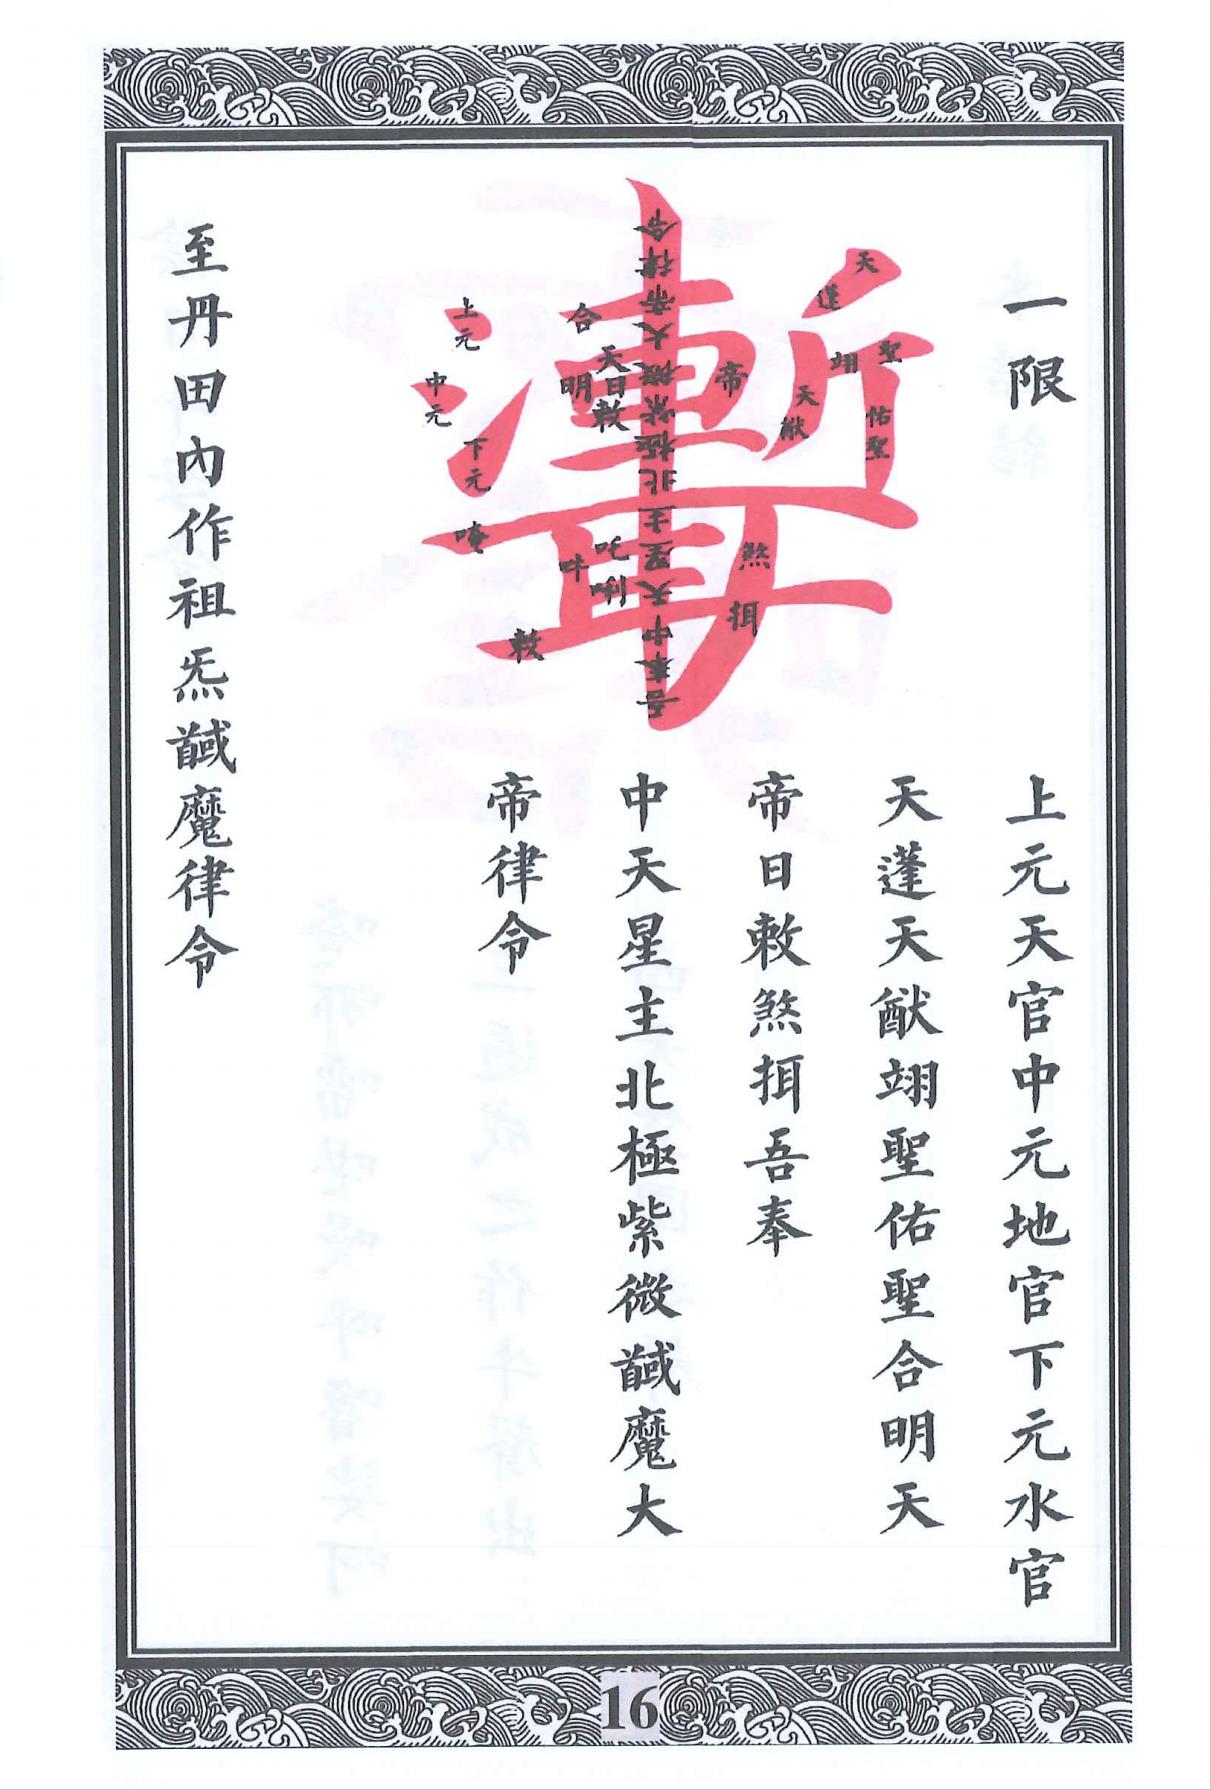 一限
上元天官中元地官下元水官
天蓬天猷翊聖佑聖合明天
帝日敕煞揖吾奉
中天星主北極紫微馘魔大
帝律令
至丹田內作祖炁馘魔律令
天蓬
天猷
翊聖
佑聖
上元
中元
下元
合明
天
帝
日敕
吾奉中天星主北極紫微馘魔大帝律令
唵
吽
吒唎
敕
煞
16